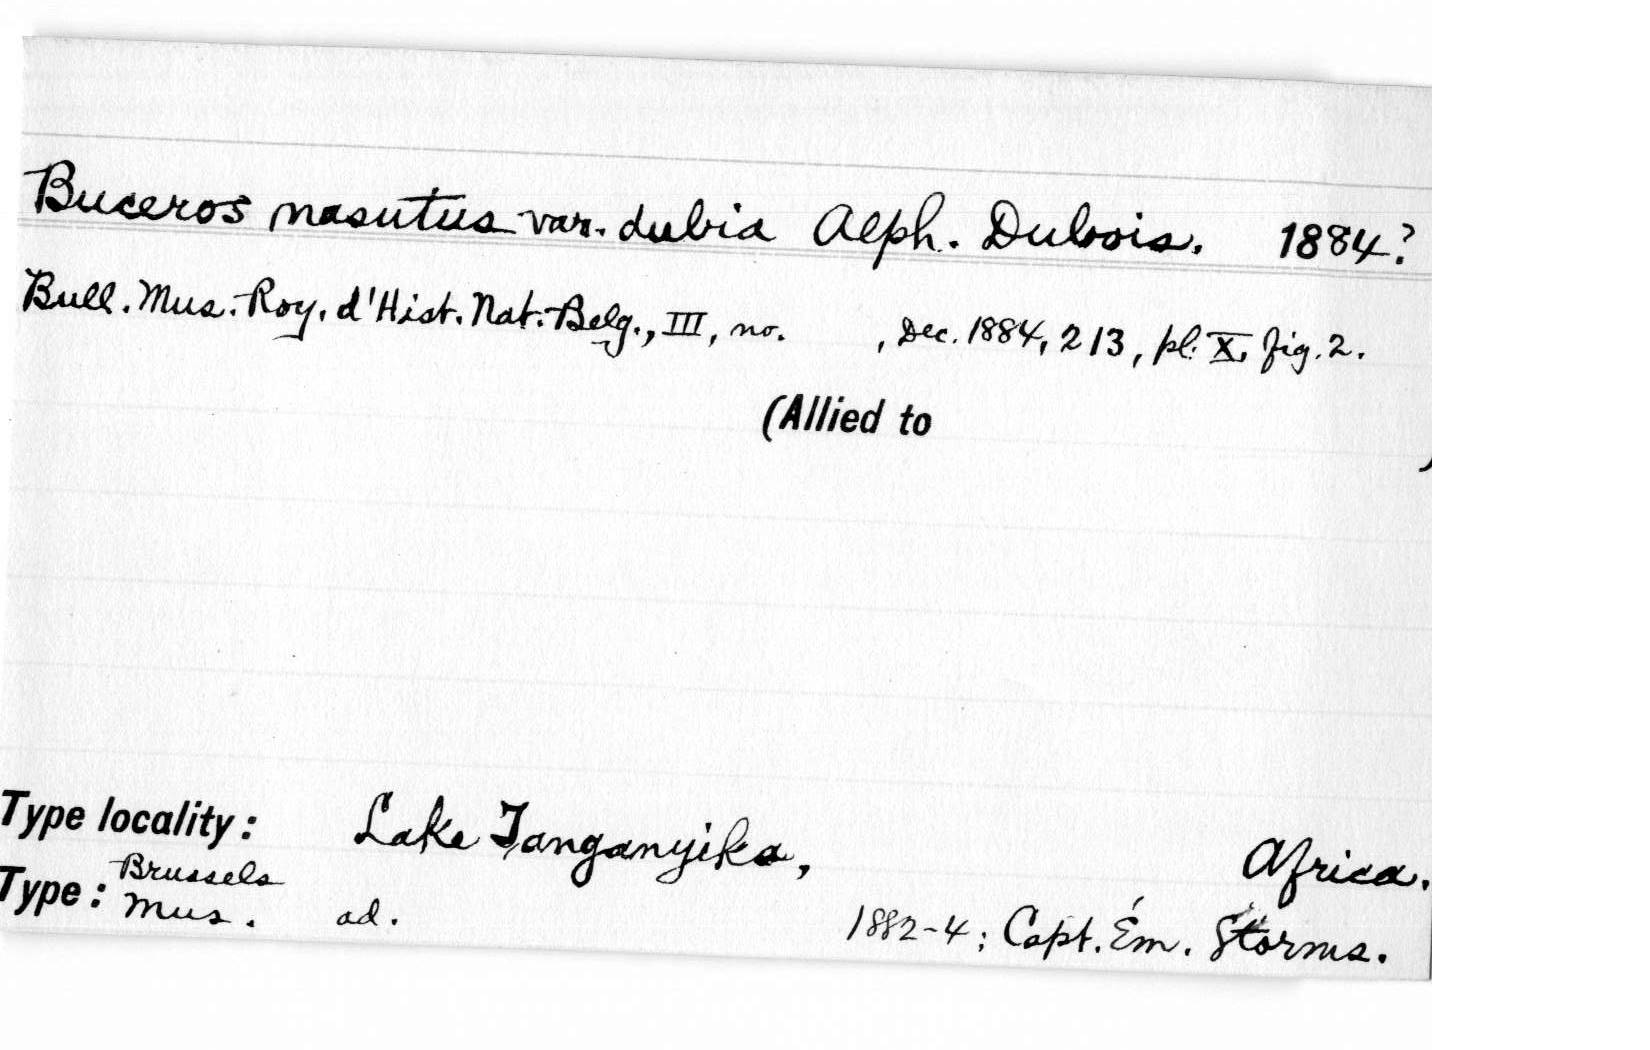 Buceros nasutus var. dubia Alph. Dubois. 1884?
Bull. Mus. Roy. d'Hist. Nat. Belg., III, no. , Dec. 1884, 213, pl. X, fig. 2.
(Allied to )
Type locality: Lake Tanganyika, Africa.
Type: Brussels Mus. ad. 1882-4; Capt. Ém. Storms.